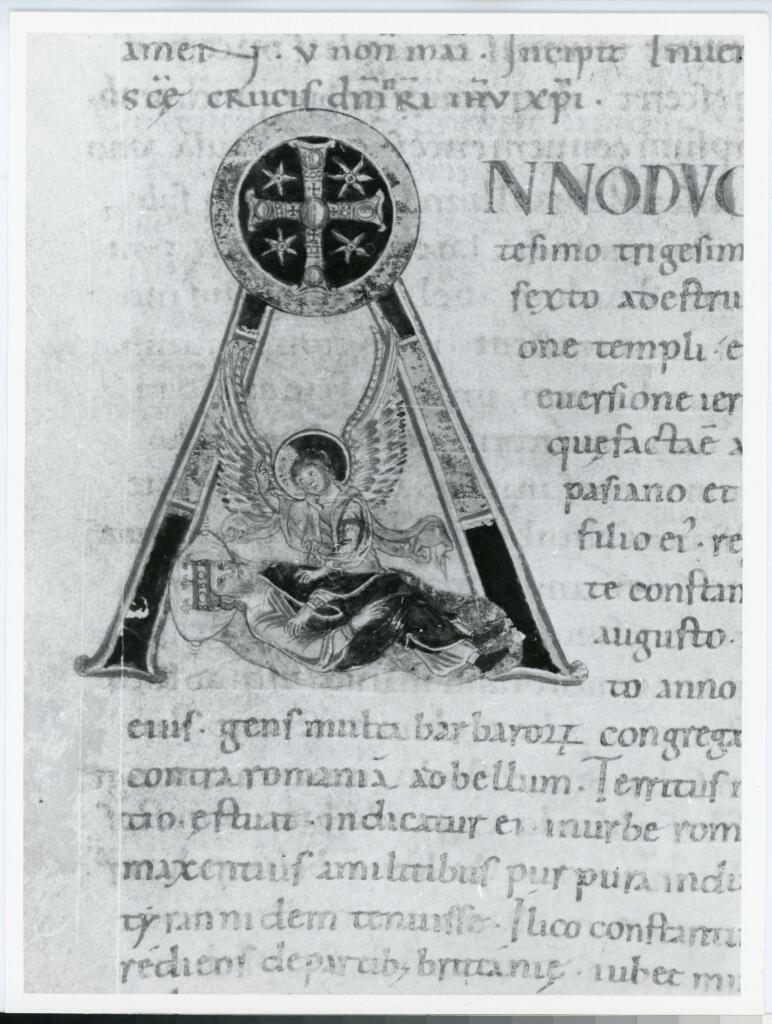 amen. V non mai. Incipit Inuen
scē crucis dn̄i nr̄i iħu xp̄i.
ANNODVC
tesimo trigesim
sexto adestru
one templi e
euersione ier
que facta ē a
pasiano et
filio ei'. re
te constan
augusto.
to anno
eius. gens multa barbaroꝝ congrega
contra romaniā ad bellum. Territus
tio. ęstuat. indicatur ei inurbe rom
maxentius amilitibus purpura indu
tyrannidem tenuisse. Ilico constantin
rediens de partib; brittanię. iubet mi